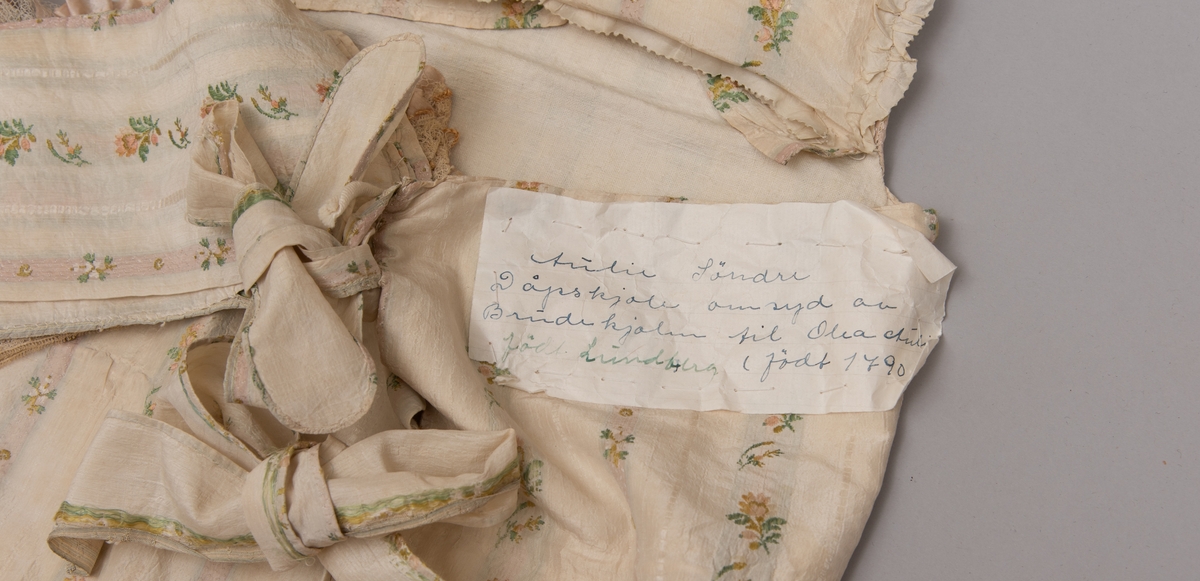 Aulie Söndre
Dåpskjole omsyd av
Brudekjolen til Olea Auli
född Lundberg (född 1790